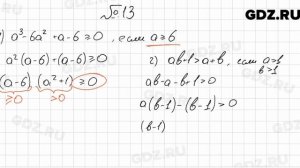 GDZ.RU
№13
) a³-6a²+a-6≥0, если a≥6
a²(a-6)+(a-6)≥0
(a-6)(a²+1)≥0
≥0 >0
2) ab+1>a+b, если a>1
b>1
ab-a-b+1>0
a(b-1)-(b-1)>0
(b-1)
GDZ.RU